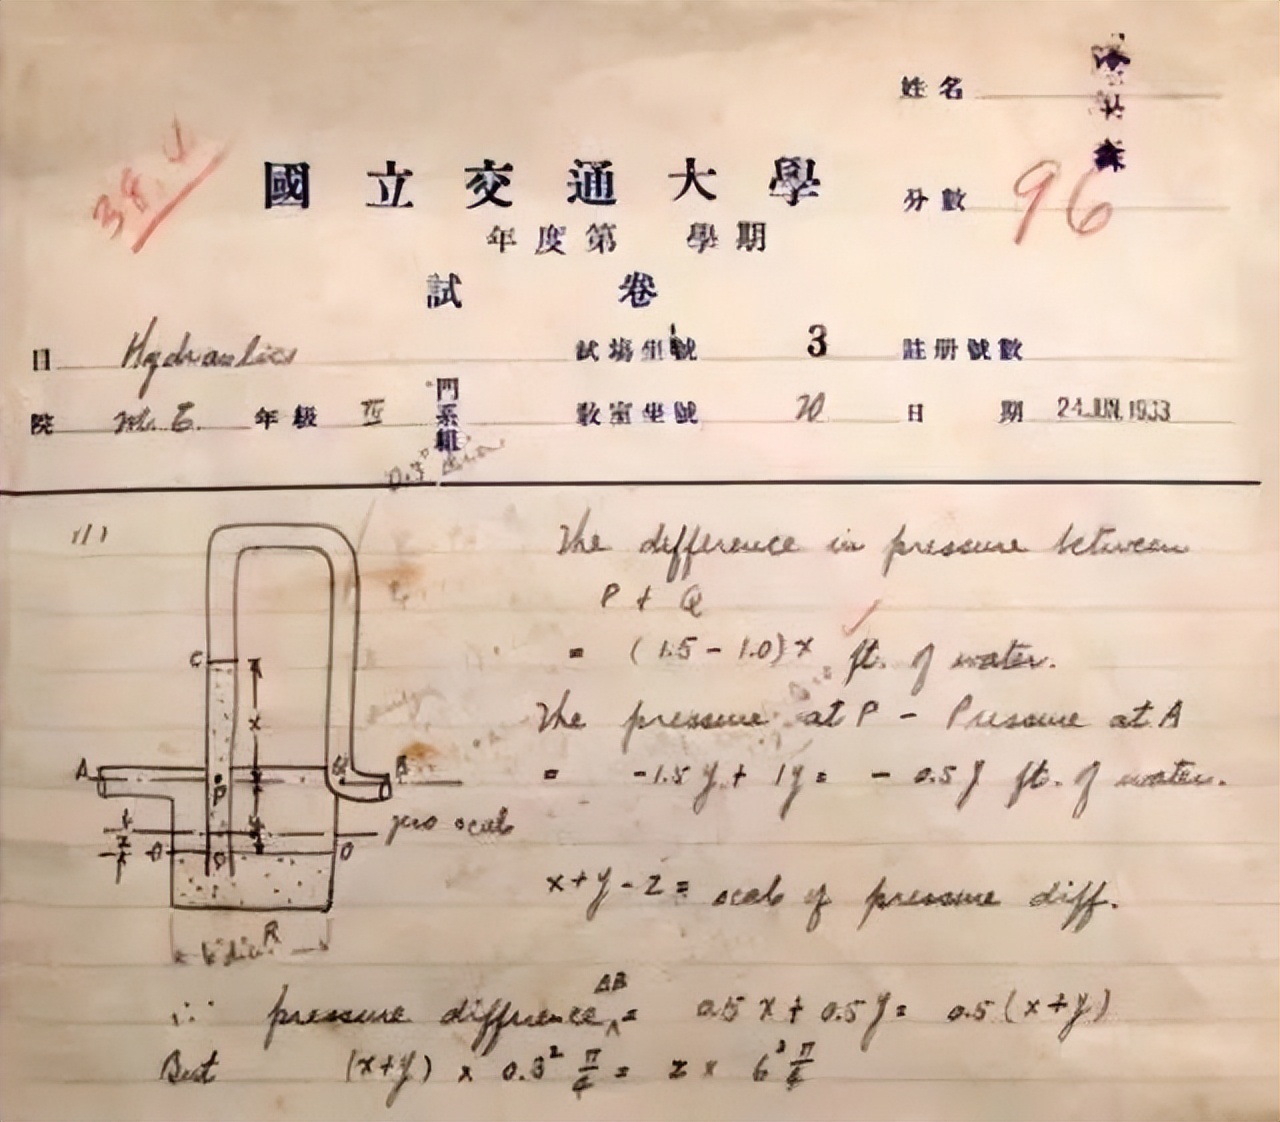 姓名
38.4
國立交通大學
分數 96
年度第 學期
試卷
目 Hydraulics 試場坐號 3 註册號數
院 M. E. 年級 III 門系組 教室坐號 20 日期 24 JUN. 1933
0.3" dia.
(1) The difference in pressure between
P + Q
= (1.5 - 1.0) x ft. of water.
C
x
The pressure at P - Pressure at A
A P Q B
= -1.5 y + 1y = - 0.5 y ft. of water.
y
zero scale
z O O
x + y - z = scale of pressure diff.
R
6" dia.
∴ pressure difference AB = 0.5 x + 0.5 y = 0.5 (x + y)
But (x+y) x 0.3² π/4 = z x 6² π/4